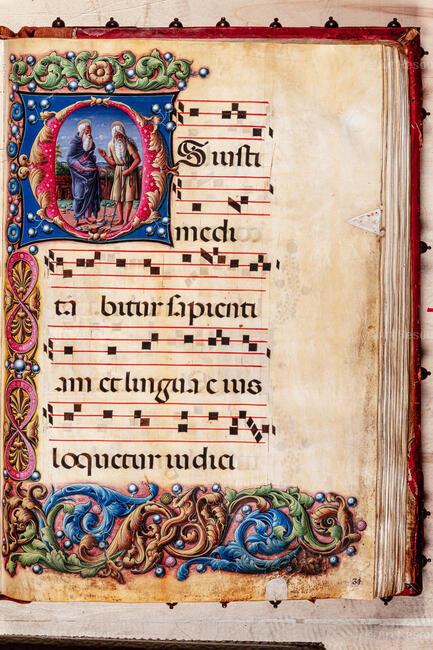 OS iusti
medi
ta bitur sapienti
am et lingua eius
loquetur iudici
34